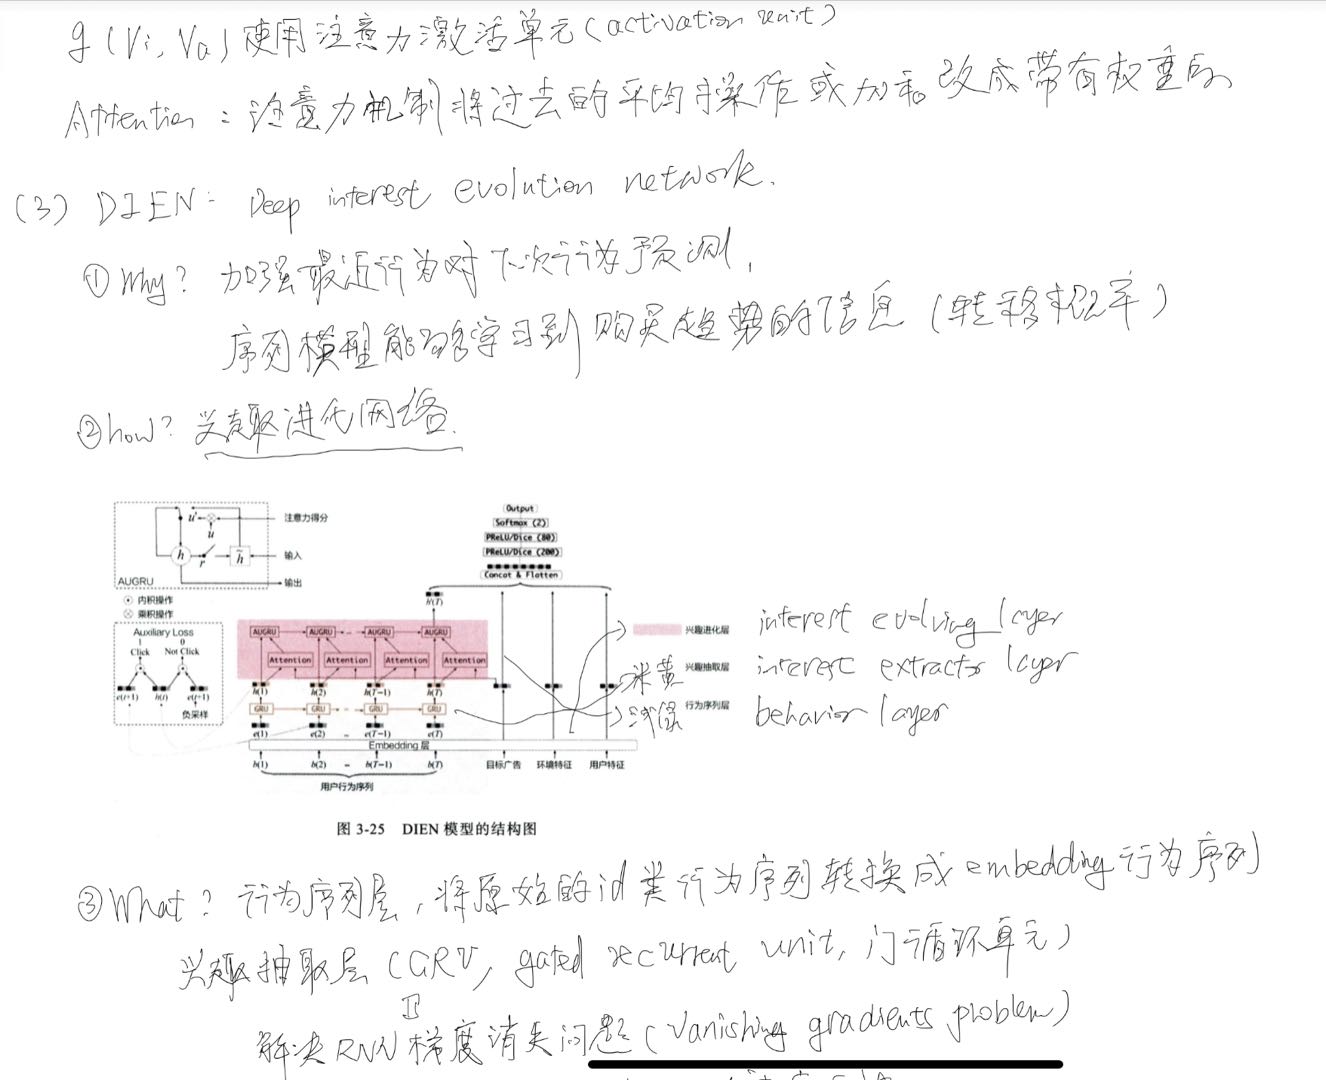 g(Vi, Va) 使用注意力激活单元 (activation unit)
Attention: 注意力机制将过去的平均操作或加和改成带有权重的
(3) DIEN: Deep interest evolution network.
① Why? 加强最近行为对下次行为预测,
序列模型能够学习到购买趋势的信息 (转移概率)
② how? 兴趣进化网络.
Output
Softmax (2)
PReLU/Dice (80)
PReLU/Dice (200)
Concat & Flatten
u' 注意力得分
u
h r h̃ 输入
AUGRU 输出
内积操作
乘积操作
Auxiliary Loss
1 0
Click Not Click
e(t+1) h(t) e(t+1)
负采样
h'(T)
AUGRU AUGRU AUGRU AUGRU
Attention Attention Attention Attention
h(1) h(2) h(T-1) h(T)
GRU GRU GRU GRU
e(1) e(2) e(T-1) e(T)
Embedding 层
b(1) b(2) b(T-1) b(T) 目标广告 环境特征 用户特征
用户行为序列
兴趣进化层 interest evolving layer
米黄 兴趣抽取层 interest extractor layer
浅绿 行为序列层 behavior layer
图 3-25 DIEN 模型的结构图
③ What? 行为序列层, 将原始的id类行为序列转换成embedding行为序列
兴趣抽取层 (GRU, gated recurrent unit, 门循环单元)
解决RNN梯度消失问题 (Vanishing gradients problem)